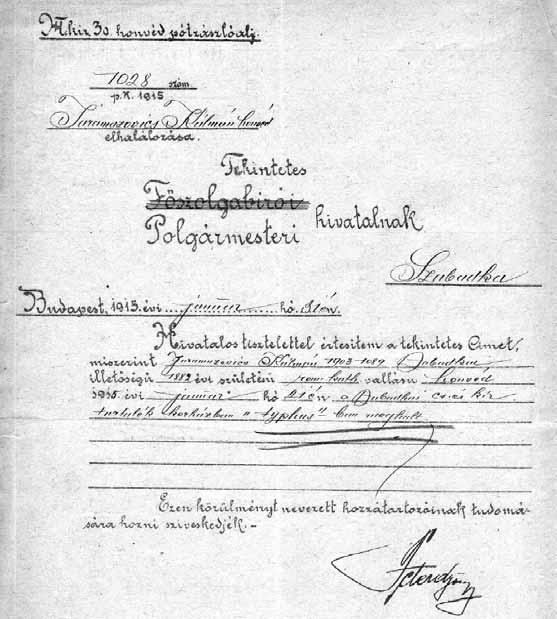 M. kir. 30. honvéd pótzászlóalj.
1028 szám.
p.k. 1915
Taramazovics Kálmán honvéd
elhalálozása.
Tekintetes
Főszolgabirói
Polgármesteri hivatalnak
Szabadka
Budapest, 1915. évi január hó 31én.
Hivatalos tisztelettel értesitem a tekintetes Cimet,
miszerint Kálmán 1903-1089 szabadkai
illetőségü 1882 évi születésü rom. kath. vallásu honvéd
1915. évi január hó 21én a szabadkai cs. és kir.
tartalék korházban "typhus" ban meghalt
Ezen körülményt nevezett hozzátartozóinak tudomá-
sára hozni sziveskedjék.-